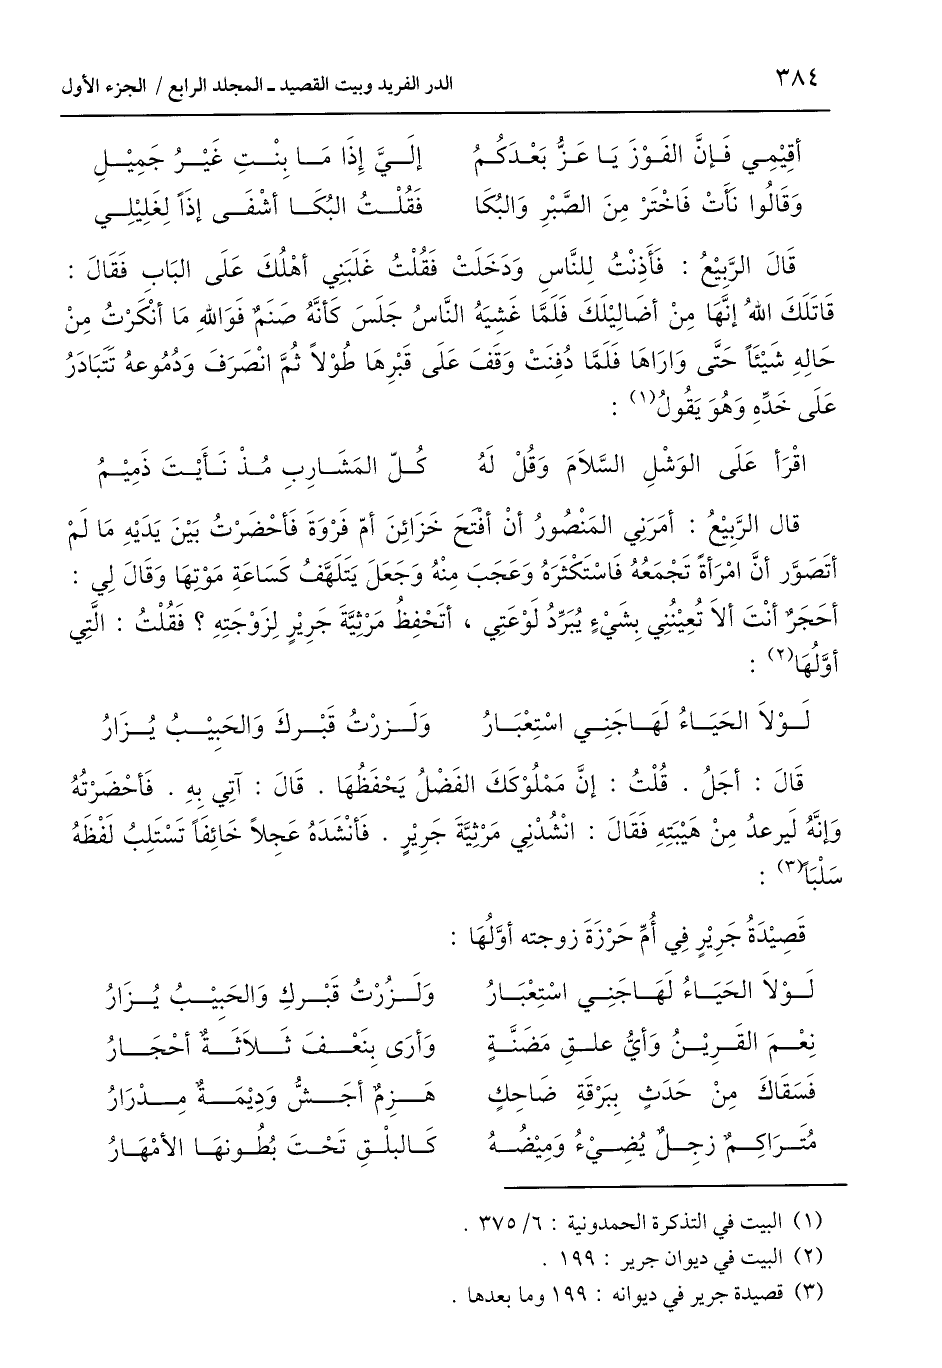 ٣٨٤ الدر الفريد وبيت القصيد ـ المجلد الرابع / الجزء الأول
أقِيْمِي فَإنَّ الفَوْزَ يَا عَزُّ بَعْدَكُمُ إلَيَّ إِذَا مَا بِنْتِ غَيْرُ جَمِيْلِ
وَقَالُوا نَأَتْ فَاخْتَرْ مِنَ الصَّبْرِ وَالبُكَا فَقُلْتُ البُكَا أشْفَى إذَاً لِغَلِيْلِي
قَالَ الرَّبِيْعُ : فَأَذِنْتُ لِلنَّاسِ وَدَخَلَتْ فَقُلْتُ غَلَبَنِي أهْلُكَ عَلَى البَابِ فَقَالَ :
قَاتَلَكَ اللهُ إنَّهَا مِنْ أضَالِيْلَكَ فَلَمَّا غَشِيَهُ النَّاسُ جَلَسَ كَأنَّهُ صَنَمٌ فَوَاللهِ مَا أنْكَرْتُ مِنْ
حَالِهِ شَيْئَاً حَتَّى وَارَاهَا فَلَمَّا دُفِنَتْ وَقَفَ عَلَى قَبْرِهَا طُوْلاً ثُمَّ انْصَرَفَ وَدُمُوعهُ تَتَبَادَرُ
عَلَى خَدِّهِ وَهُوَ يَقُولُ(١) :
اقْرَأ عَلَى الوَشْلِ السَّلاَمَ وَقُلْ لَهُ كُلّ المَشَارِبِ مُذْ نَأَيْتَ ذَمِيْمُ
قال الرَّبِيْعُ : أمَرَنِي المَنْصُورُ أنْ أفْتَحَ خَزَائِنَ أمّ فَرْوَةَ فَأحْضَرْتُ بَيْنَ يَدَيْهِ مَا لَمْ
أتَصَوَّر أنَّ امْرَأةً تَجْمَعُهُ فَاسْتَكْثَرَهُ وَعَجَبَ مِنْهُ وَجَعَلَ يَتَلَهَّفُ كَسَاعَةِ مَوْتِهَا وَقَالَ لِي :
أحَجَرٌ أنْتَ ألاَ تُعِيْنُنِي بِشَيْءٍ يُبَرِّدُ لَوْعَتِي ، أتَحْفِظُ مَرْثِيَّةَ جَرِيْرٍ لِزَوْجَتِهِ ؟ فَقُلْتُ : الَّتِي
أوَّلُهَا(٢) :
لَوْلاَ الحَيَاءُ لَهَاجَنِي اسْتِعْبَارُ وَلَزرْتُ قَبْركَ وَالحَبِيْبُ يُزَارُ
قَالَ : أجَلُ . قُلْتُ : إنَّ مَمْلُوْكَكَ الفَضْلُ يَحْفَظُهَا . قَالَ : آتِي بِهِ . فَأحْضَرْتُهُ
وَإنَّهُ لَيرعدُ مِنْ هَيْبَتِهِ فَقَالَ : انْشُدْنِي مَرْثِيَّةَ جَرِيْرٍ . فَأنْشَدَهُ عَجِلاً خَائِفَاً تَسْتَلِبُ لَفْظَهُ
سَلْبَاً(٣) :
قَصِيْدَةُ جَرِيْرٍ فِي أُمِّ حَرْزَةَ زوجته أوَّلُهَا :
لَوْلاَ الحَيَاءُ لَهَاجَنِي اسْتِعْبَارُ وَلَزُرْتُ قَبْركِ وَالحَبِيْبُ يُزَارُ
نِعْمَ القَرِيْنُ وَأيُّ علقِ مَضَنَّةٍ وَأرَى بِنَعْفَ ثَلاَثَةٌ أحْجَارُ
فَسَقَاكَ مِنْ حَدَثٍ بِبَرْقَةِ ضَاحِكٍ هَزِمٌ أجَشُّ وَدِيْمَةٌ مِدْرَارُ
مُتَرَاكِمٌ زجِلٌ يُضِيْءُ وَمِيْضُهُ كَالبلْقِ تَحْتَ بُطُونهَا الأمْهَارُ
(١) البيت في التذكرة الحمدونية : ٦/ ٣٧٥ .
(٢) البيت في ديوان جرير : ١٩٩ .
(٣) قصيدة جرير في ديوانه : ١٩٩ وما بعدها .